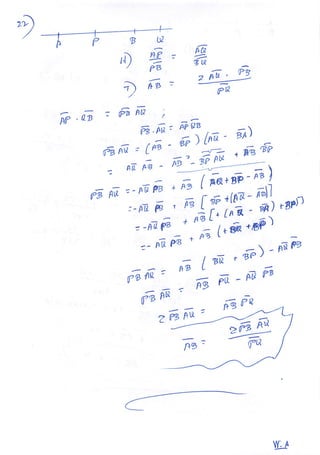 22)
A P B Q
H) AP/PB = AQ/BQ
T) AB = 2 AQ . PB / PQ
AP . QB = PB AQ ;
PB . AQ = AP QB
PB AQ = (AB - BP) (AQ - BA)
= AQ AB - AB² - BP AQ + AB BP
PB AQ = - AQ PB + AB ( AQ + BP - AB )
= - AQ PB + AB [ BP + (AQ - AB) ]
= - AQ PB + AB
= - AQ PB + AB ( + BQ + BP )
PB AQ = AB ( BQ + BP ) - AQ PB
PB AQ = AB PQ - AQ PB
2 PB AQ = AB PQ
AB = 2 PB AQ / PQ
W. A